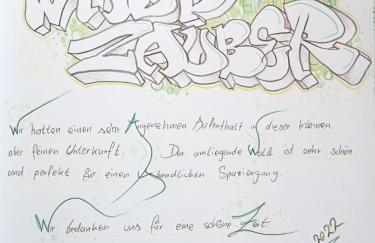 WALD
ZAUBER
Wir hatten einen sehr Angenehmen Aufenthalt in dieser kleinen,
aber feinen Unterkunft. Der umliegende Wald ist sehr schön
und perfekt für einen abendlichen Spaziergang.
Wir bedanken uns für eine schöne Zeit.
2022